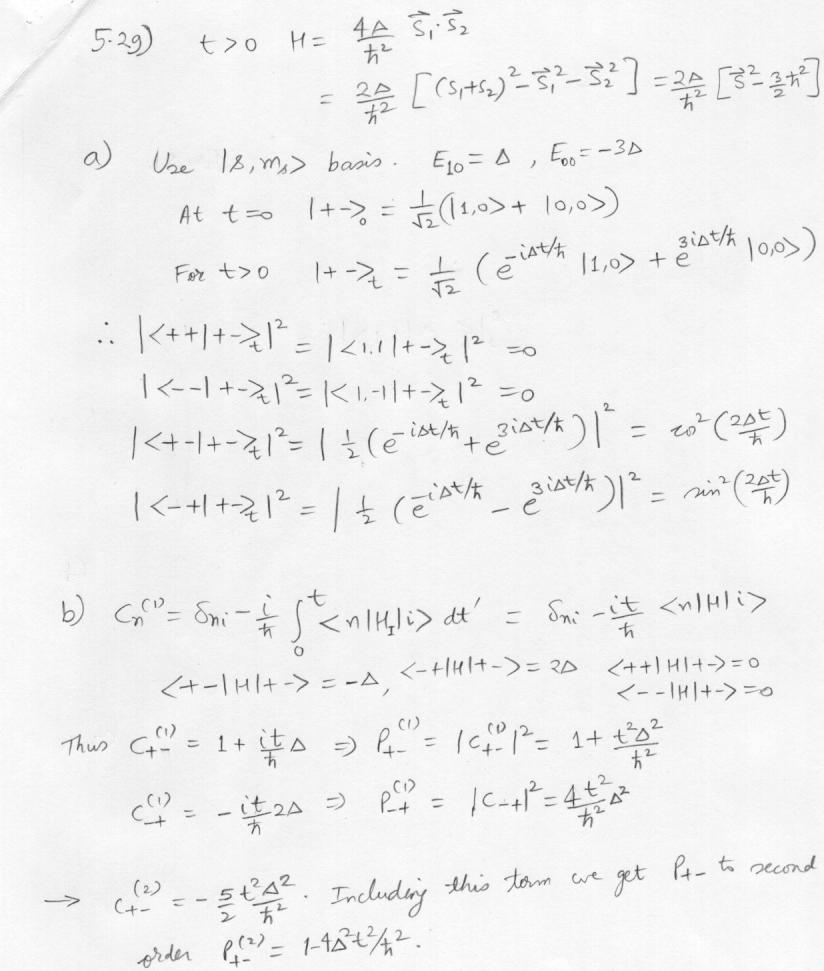 5.29) t>0 H = 4Δ/ħ² S⃗₁·S⃗₂
= 2Δ/ħ² [(S₁+S₂)² - S⃗₁² - S⃗₂²] = 2Δ/ħ² [S⃗² - 3/2 ħ²]
a) Use |s, mₛ> basis. E₁₀ = Δ , E₀₀ = -3Δ
At t=0 |+->₀ = 1/√2 (|1,0> + |0,0>)
For t>0 |+->ₜ = 1/√2 (e^{-iΔt/ħ} |1,0> + e^{3iΔt/ħ} |0,0>)
∴ |<++|+->ₜ|² = |<1,1|+->ₜ|² = 0
|<--|+->ₜ|² = |<1,-1|+->ₜ|² = 0
|<+-|+->ₜ|² = |1/2 (e^{-iΔt/ħ} + e^{3iΔt/ħ})|² = cos² (2Δt/ħ)
|<-+|+->ₜ|² = |1/2 (e^{-iΔt/ħ} - e^{3iΔt/ħ})|² = sin² (2Δt/ħ)
b) Cₙ⁽¹⁾ = δₙᵢ - i/ħ ∫₀ᵗ <n|H_I|i> dt' = δₙᵢ - it/ħ <n|H|i>
<+-|H|+-> = -Δ, <-+|H|+-> = 2Δ <++|H|+-> = 0
<--|H|+-> = 0
Thus C₊₋⁽¹⁾ = 1 + it/ħ Δ ⇒ P₊₋⁽¹⁾ = |C₊₋⁽¹⁾|² = 1 + t²Δ²/ħ²
C₋₊⁽¹⁾ = - it/ħ 2Δ ⇒ P₋₊⁽¹⁾ = |C₋₊|² = 4t²/ħ² Δ²
→ C₊₋⁽²⁾ = - 5/2 t²Δ²/ħ². Including this term we get P₊₋ to second
order P₊₋⁽²⁾ = 1-4Δ²t²/ħ².